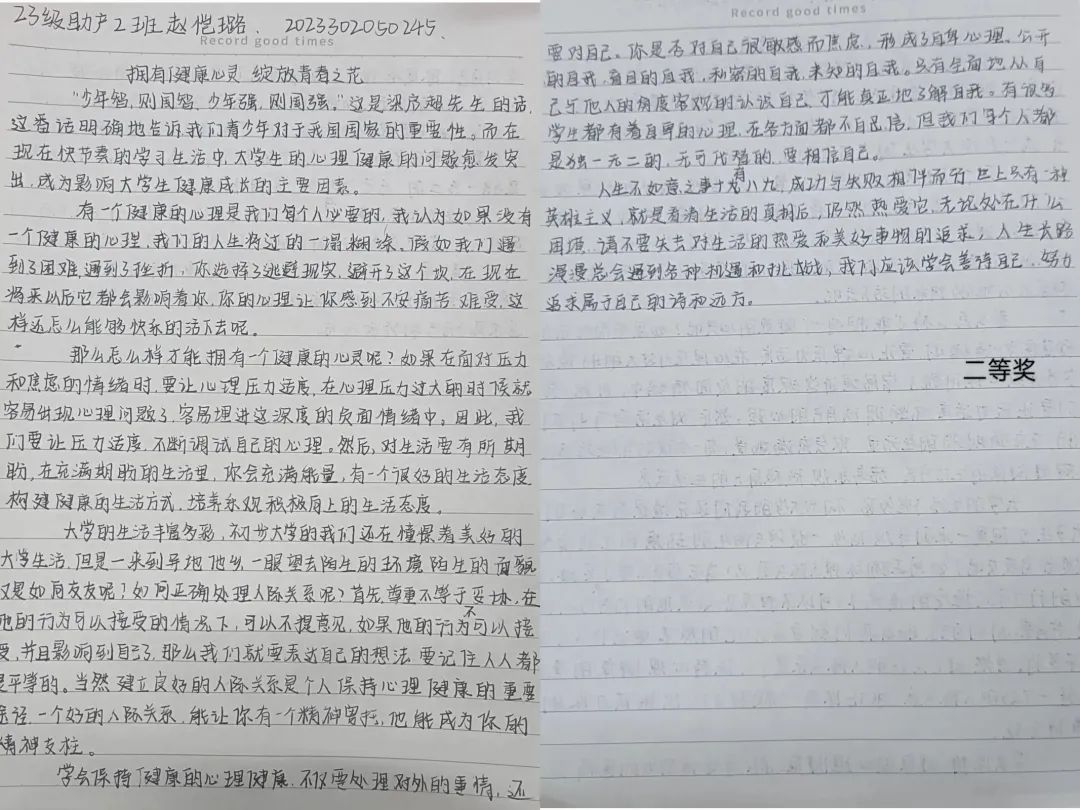 23级助产2班 赵恺璐. 2023302050245.
Record good times
拥有健康心灵 绽放青春之花
"少年智,则国智,少年强,则国强。"这是梁启超先生的话,
这番话明确地告诉我们青少年对于我国国家的重要性。而在
现在快节奏的学习生活中,大学生的心理健康的问题愈发突
出,成为影响大学生健康成长的主要因素。
有一个健康的心理是我们每个人必要的,我认为如果没有
一个健康的心理,我们的人生将过的一塌糊涂。假如我们遇
到了困难,遇到了挫折,你选择了逃避现实,避开了这个坎,在现在
将来以后它都会影响着你,你的心理让你感到不安痛苦,难受,这
样还怎么能够快乐的活下去呢。
那么怎么样才能拥有一个健康的心灵呢?如果在面对压力
和焦虑的情绪时,要让心理压力适度,在心理压力过大的时候就
容易出现心理问题了,容易埋进这深度的负面情绪中。因此,我
们要让压力适度,不断调试自己的心理。然后,对生活要有所期
盼,在充满期盼的生活里,你会充满能量,有一个很好的生活态度
构建健康的生活方式,培养乐观积极向上的生活态度。
大学的生活丰富多彩,初步大学的我们还在憧憬着美好的
大学生活,但是一来到异地他乡,一眼望去陌生的环境陌生的面貌
又是如何交友呢?如何正确处理人际关系呢?首先,尊重不等于妥协,在
他的行为可以接受的情况下,可以不提意见,如果他的行为不可以接
受,并且影响到自己了,那么我们就要表达自己的想法,要记住人人都
是平等的。当然建立良好的人际关系是个人保持心理健康的重要
途径,一个好的人际关系,能让你有一个精神寄托,他能成为你的
精神支柱。
学会保持健康的心理健康,不仅要处理对外的事情,还
Record good times
要对自己。你是否对自己很敏感而焦虑,形成了自卑心理。公开
的自我,盲目的自我,秘密的自我,未知的自我。只有全面地从自
己与他人的角度客观的认识自己,才能真正地了解自我。有很多
学生都有着自卑的心理,在各方面都不自己信,但我们每个人都
是独一无二的,无可代替的,要相信自己。
人生不如意之事十有八九,成功与失败相伴而行,世上只有一种
英雄主义,就是看清生活的真相后,仍然热爱它,无论处在什么
困境,请不要失去对生活的热爱和美好事物的追求;人生大路
漫漫总会遇到各种机遇和挑战,我们应该学会善待自己,努力
追求属于自己的诗和远方。
二等奖